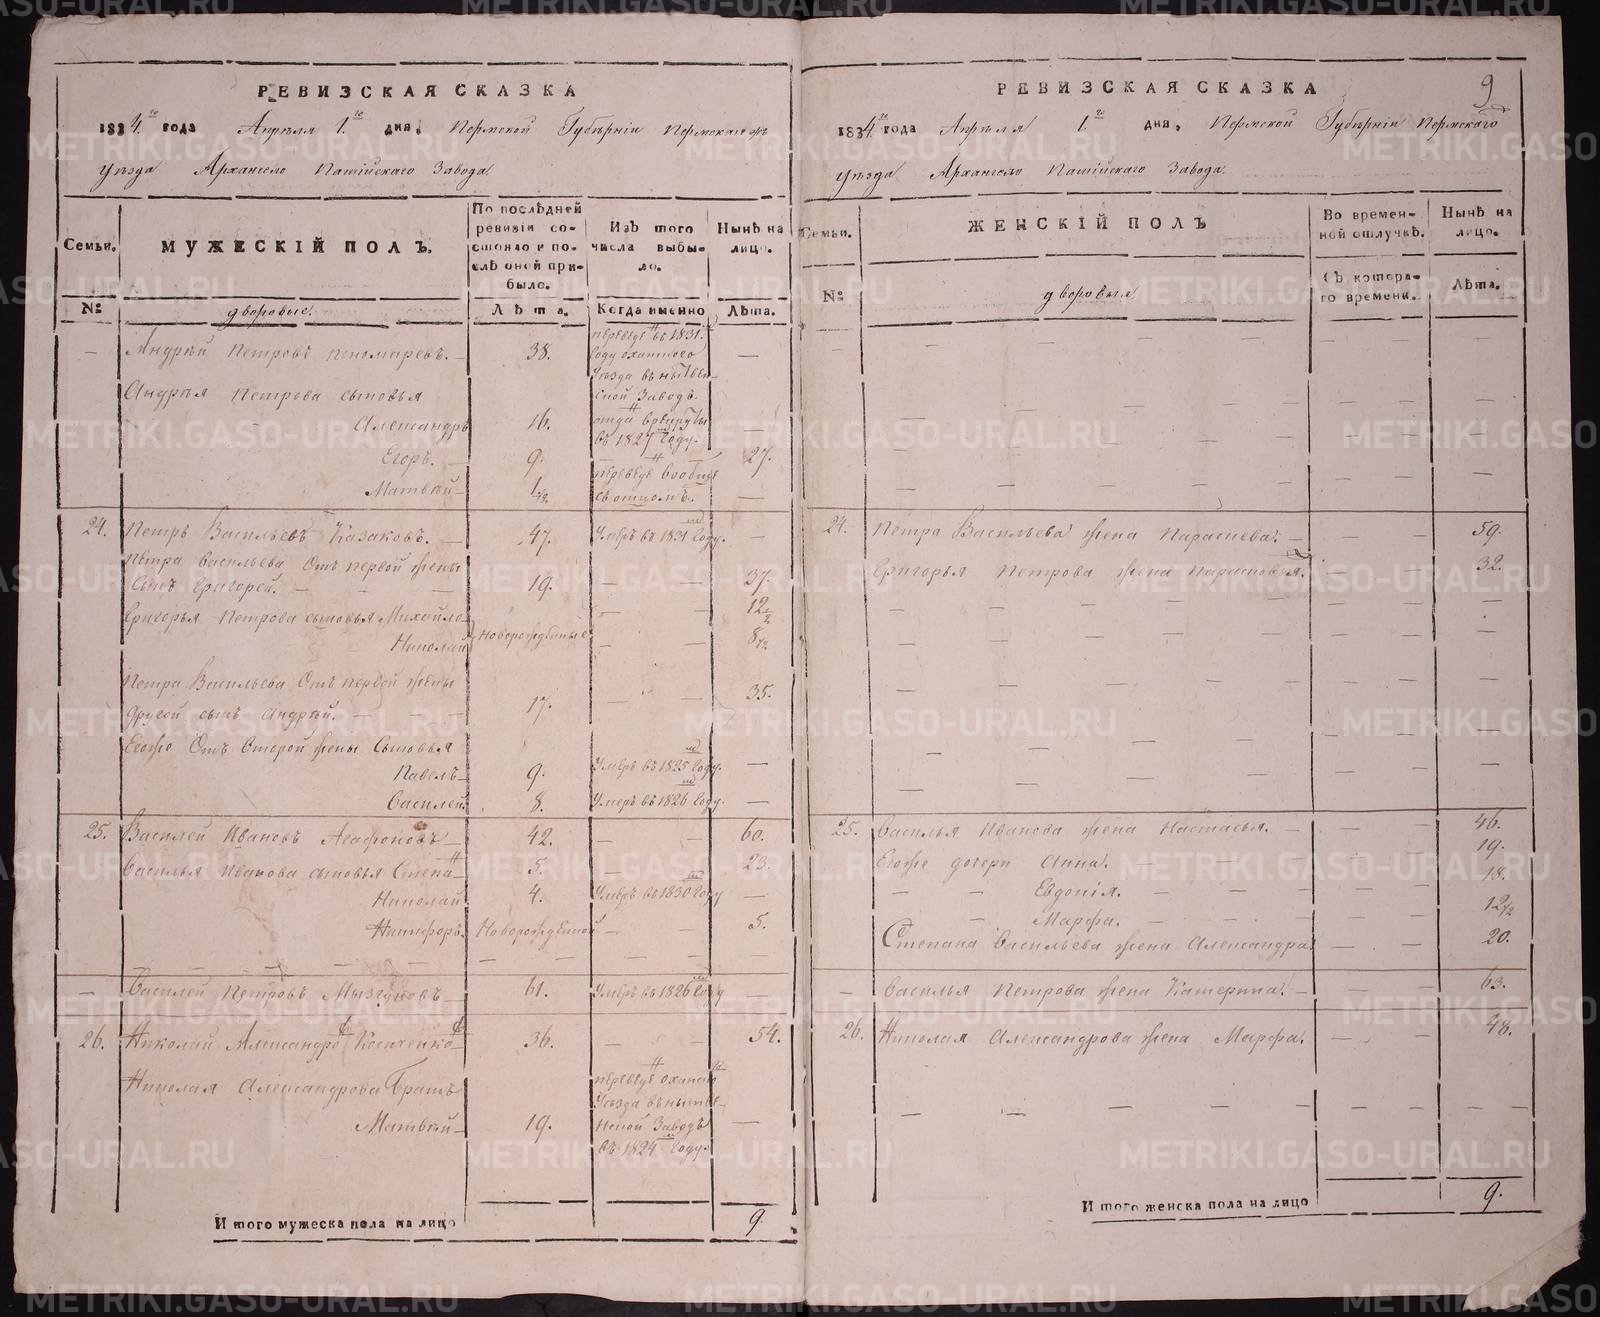 РЕВИЗСКАЯ СКАЗКА
1834.го года Апрѣля 1.го дня, Пермской Губѣрнiи Пермскаго
уѣзда Архангело Пашiйскаго Завода.
Семьи.
МУЖЕСКIЙ ПОЛЪ.
По послѣдней ревизiи состояло и послѣ оной прибыло.
Изъ того числа выбыло.
Нынѣ на лицо.
№
дворовые.
Лѣта.
Когда именно
Лѣта.
— Андрѣй Петровъ Пономаревъ. — 38. переведе въ 1831. —
году оханскаго
уѣзда въ нытвен-
Андрѣя Петрова сыновья ской Заводъ.
Александръ 16. отда въ рекруты —
въ 1827 году.
Егоръ. — 9. 27.
Матвѣй — 1/2. переведе вообще
съ отцомъ. —
24. Петръ Васильевъ Казаковъ. — 47. Умеръ въ 1831 году. —
Петра Васильева Отъ первой жены
Сынъ Григорей. — — — 19. — — 37.
Григорья Петрова сыновья Михайло Новорожденные — — 12 1/2
Николай — — 8 1/2
Петра Васильева Отъ первой жены
другой сынъ Андрѣй. — — — 17. — — 35.
Егоже Отъ Второй жены Сыновья
Павелъ — 9. Умеръ въ 1825 году. —
Василей. 8. Умеръ въ 1826 году. —
25. Василей Ивановъ Агафоновъ — 42. — — 60.
Василья Иванова сыновья Степа — 5. — — 23.
Николай 4. Умеръ въ 1830 году —
Никифоръ. Новорожденной — — 5.
— Василей Петровъ Мызгуновъ — 61. Умеръ въ 1826 году —
26. Николай Александро Косаченко 36. — — 54.
Николая Александрова Братъ переведе оханско
уѣзда въ нытве-
Матвѣй — 19. нской Заводъ —
въ 1824 году.
Итого мужеска пола на лицо 9.
9
РЕВИЗСКАЯ СКАЗКА
1834.го года Апрѣля 1.го дня, Пермской Губѣрнiи Пермскаго
уѣзда Архангело Пашiйскаго Завода.
Семьи.
ЖЕНСКIЙ ПОЛЪ
Во временной отлучкѣ.
Нынѣ на лицо.
№
дворовыя
Съ котораго времени.
Лѣта.
24. Петра Васильева жена Параскева. — — — 59.
Григорья Петрова жена Парасковья. — 32.
25. Василья Иванова жена Настасья. — — — 46.
Егоже дочери Анна. — — — 19.
— — Евдокiя. — — 18.
— Марфа. — — — 12 1/2
Степана Васильева жена Александра. — — 20.
— Василья Петрова жена Катерина. — — — 63.
26. Николая Александрова жена Марфа. — — 48.
Итого женска пола на лицо 9.
METRIKI.GASO-URAL.RU